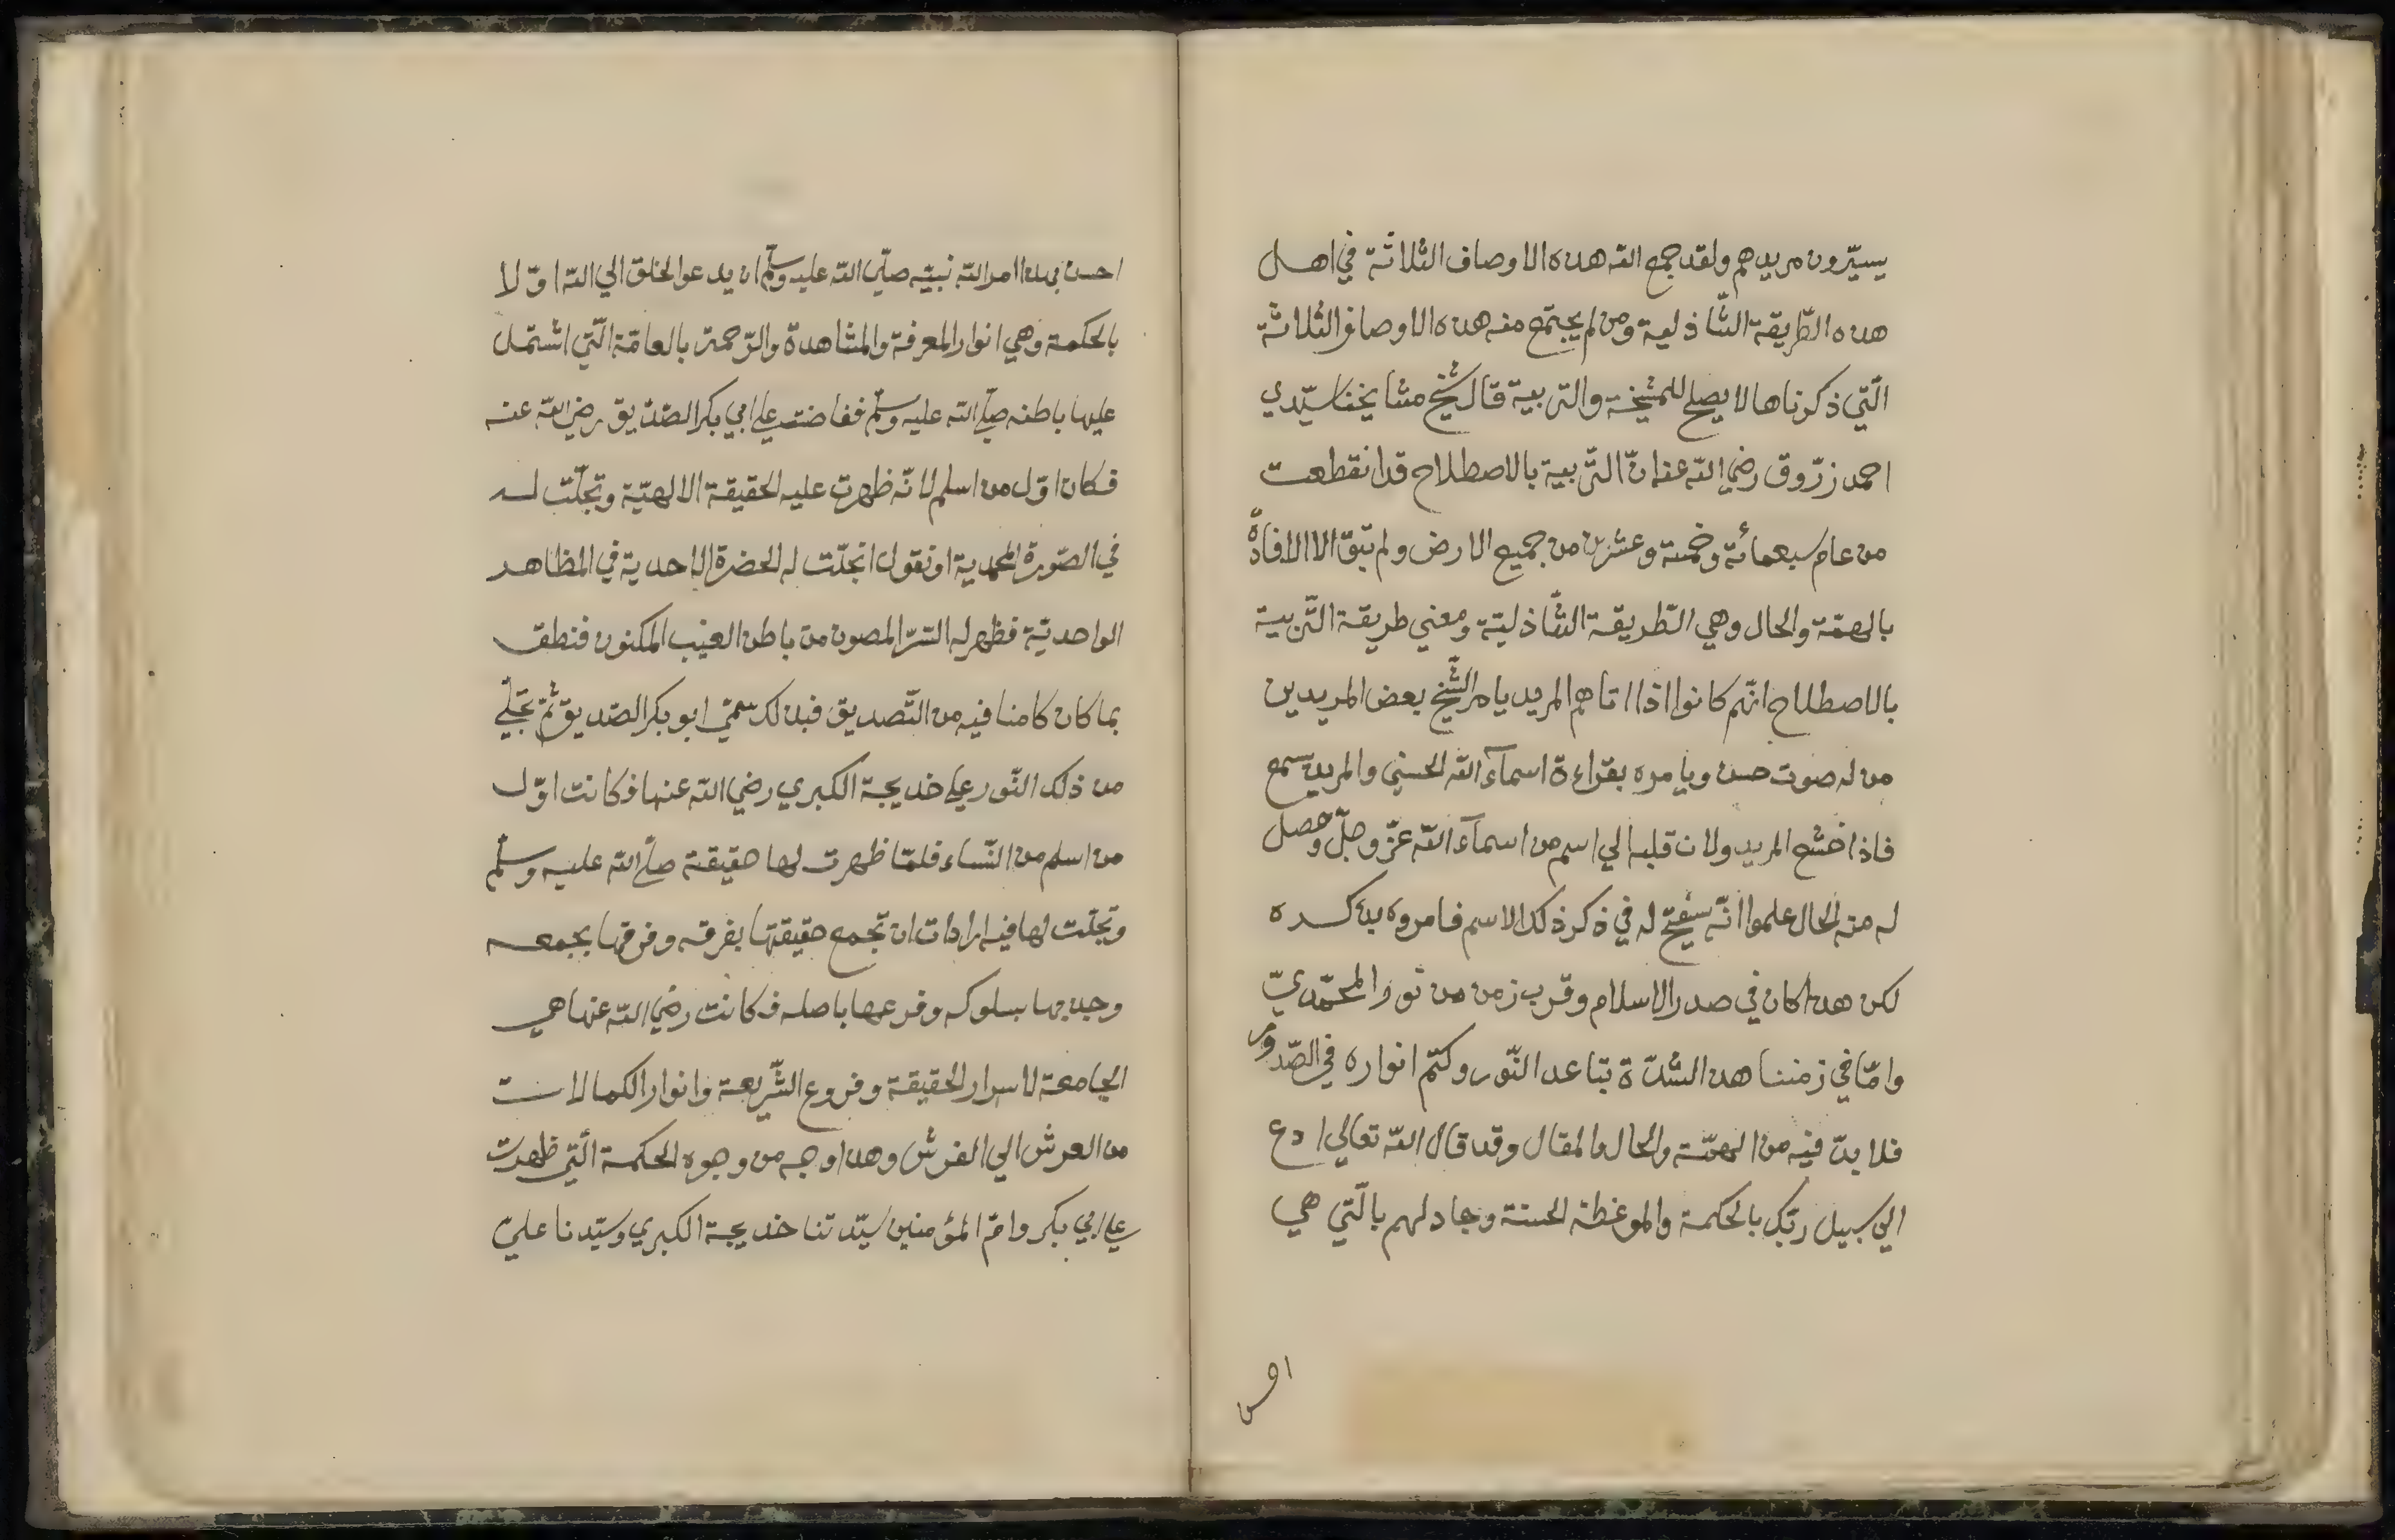 يسيّرون مريدهم ولقد جمع الله هذه الاوصاف الثلاثة في اهل
هذه الطّريقة الشّاذلية ومن لم يجتمع منه هذه الاوصاف الثلاثة
الّتي ذكرناها لا يصلح للمشيخة والتربية قال شيخ مشايخنا سيّدي
احمد زرّوق رضي الله عنه انّ التّربية بالاصطلاح قد انقطعت
من عام سبعمائة وخمسة وعشرين من جميع الارض ولم تبق الا الافادة
بالهمّة والحال وهي الطّريقة الشّاذليّة ومعني طريقة التّربية
بالاصطلاح انّهم كانوا اذا اتاهم المريد يامر الشّيخ بعض المريدين
من له صوت حسن ويامره بقراءة اسمآء الله الحسني والمريد يسمع
فاذا خشع المريد ولان قلبه الي اسم من اسمآء الله عزّ وجلّ وحصل
له منه الحال علموا انّه سيفتح له في ذكر ذلك الاسم فامروه بذكره
لكن هذا كان في صدر الاسلام وقرب زمن من نور المحمّديّ
وامّا في زمننا هذا لشدّة تباعد النّور وكتم انواره في الصّدور
فلا بدّ فيه من الهمّة والحال والمقال وقد قال الله تعالي ادع
الي سبيل ربّك بالحكمة والموعظة الحسنة وجادلهم بالّتي هي
احسن
احسن بهذا امر الله نبيّه صلّي الله عليه وسلّم ان يدعو الخلق الي الله اوّلا
بالحكمة وهي انوار المعرفة والمشاهدة والرّحمة بالعامّة الّتي اشتمل
عليها باطنه صلّي الله عليه وسلّم ففاضت علي ابي بكر الصّدّيق رضي الله عنه
فكان اوّل من اسلم لانّه ظهرت عليه الحقيقة الالهيّة وتجلّت له
في الصّورة المحمدية او نقول انجلّت له الحضرة الاحدية في المظاهر
الواحديّة فظهر له السّرّ المصون من باطن الغيب المكنون فنطق
بما كان كامنا فيه من التّصديق فبذلك سمّي ابو بكر الصّديق ثمّ تجلّي
من ذلك النّور علي خديجة الكبري رضي الله عنها فكانت اوّل
من اسلم من النّساء فلمّا ظهرت لها حقيقة صلّي الله عليه وسلّم
وتجلّت لها فيه ارادات ان تجمع حقيقتها بفرقه وفرقها بجمعه
وجذبها بسلوكه وفرعها باصله فكانت رضي الله عنها هي
الجامعة لاسرار الحقيقة وفروع الشّريعة وانوار الكمالات
من العرش الي الفرش وهذا وجه من وجوه الحكمة الّتي ظهرت
علي ابي بكر وامّ المؤمنين سيّدتنا خديجة الكبري وسيّدنا عليّ